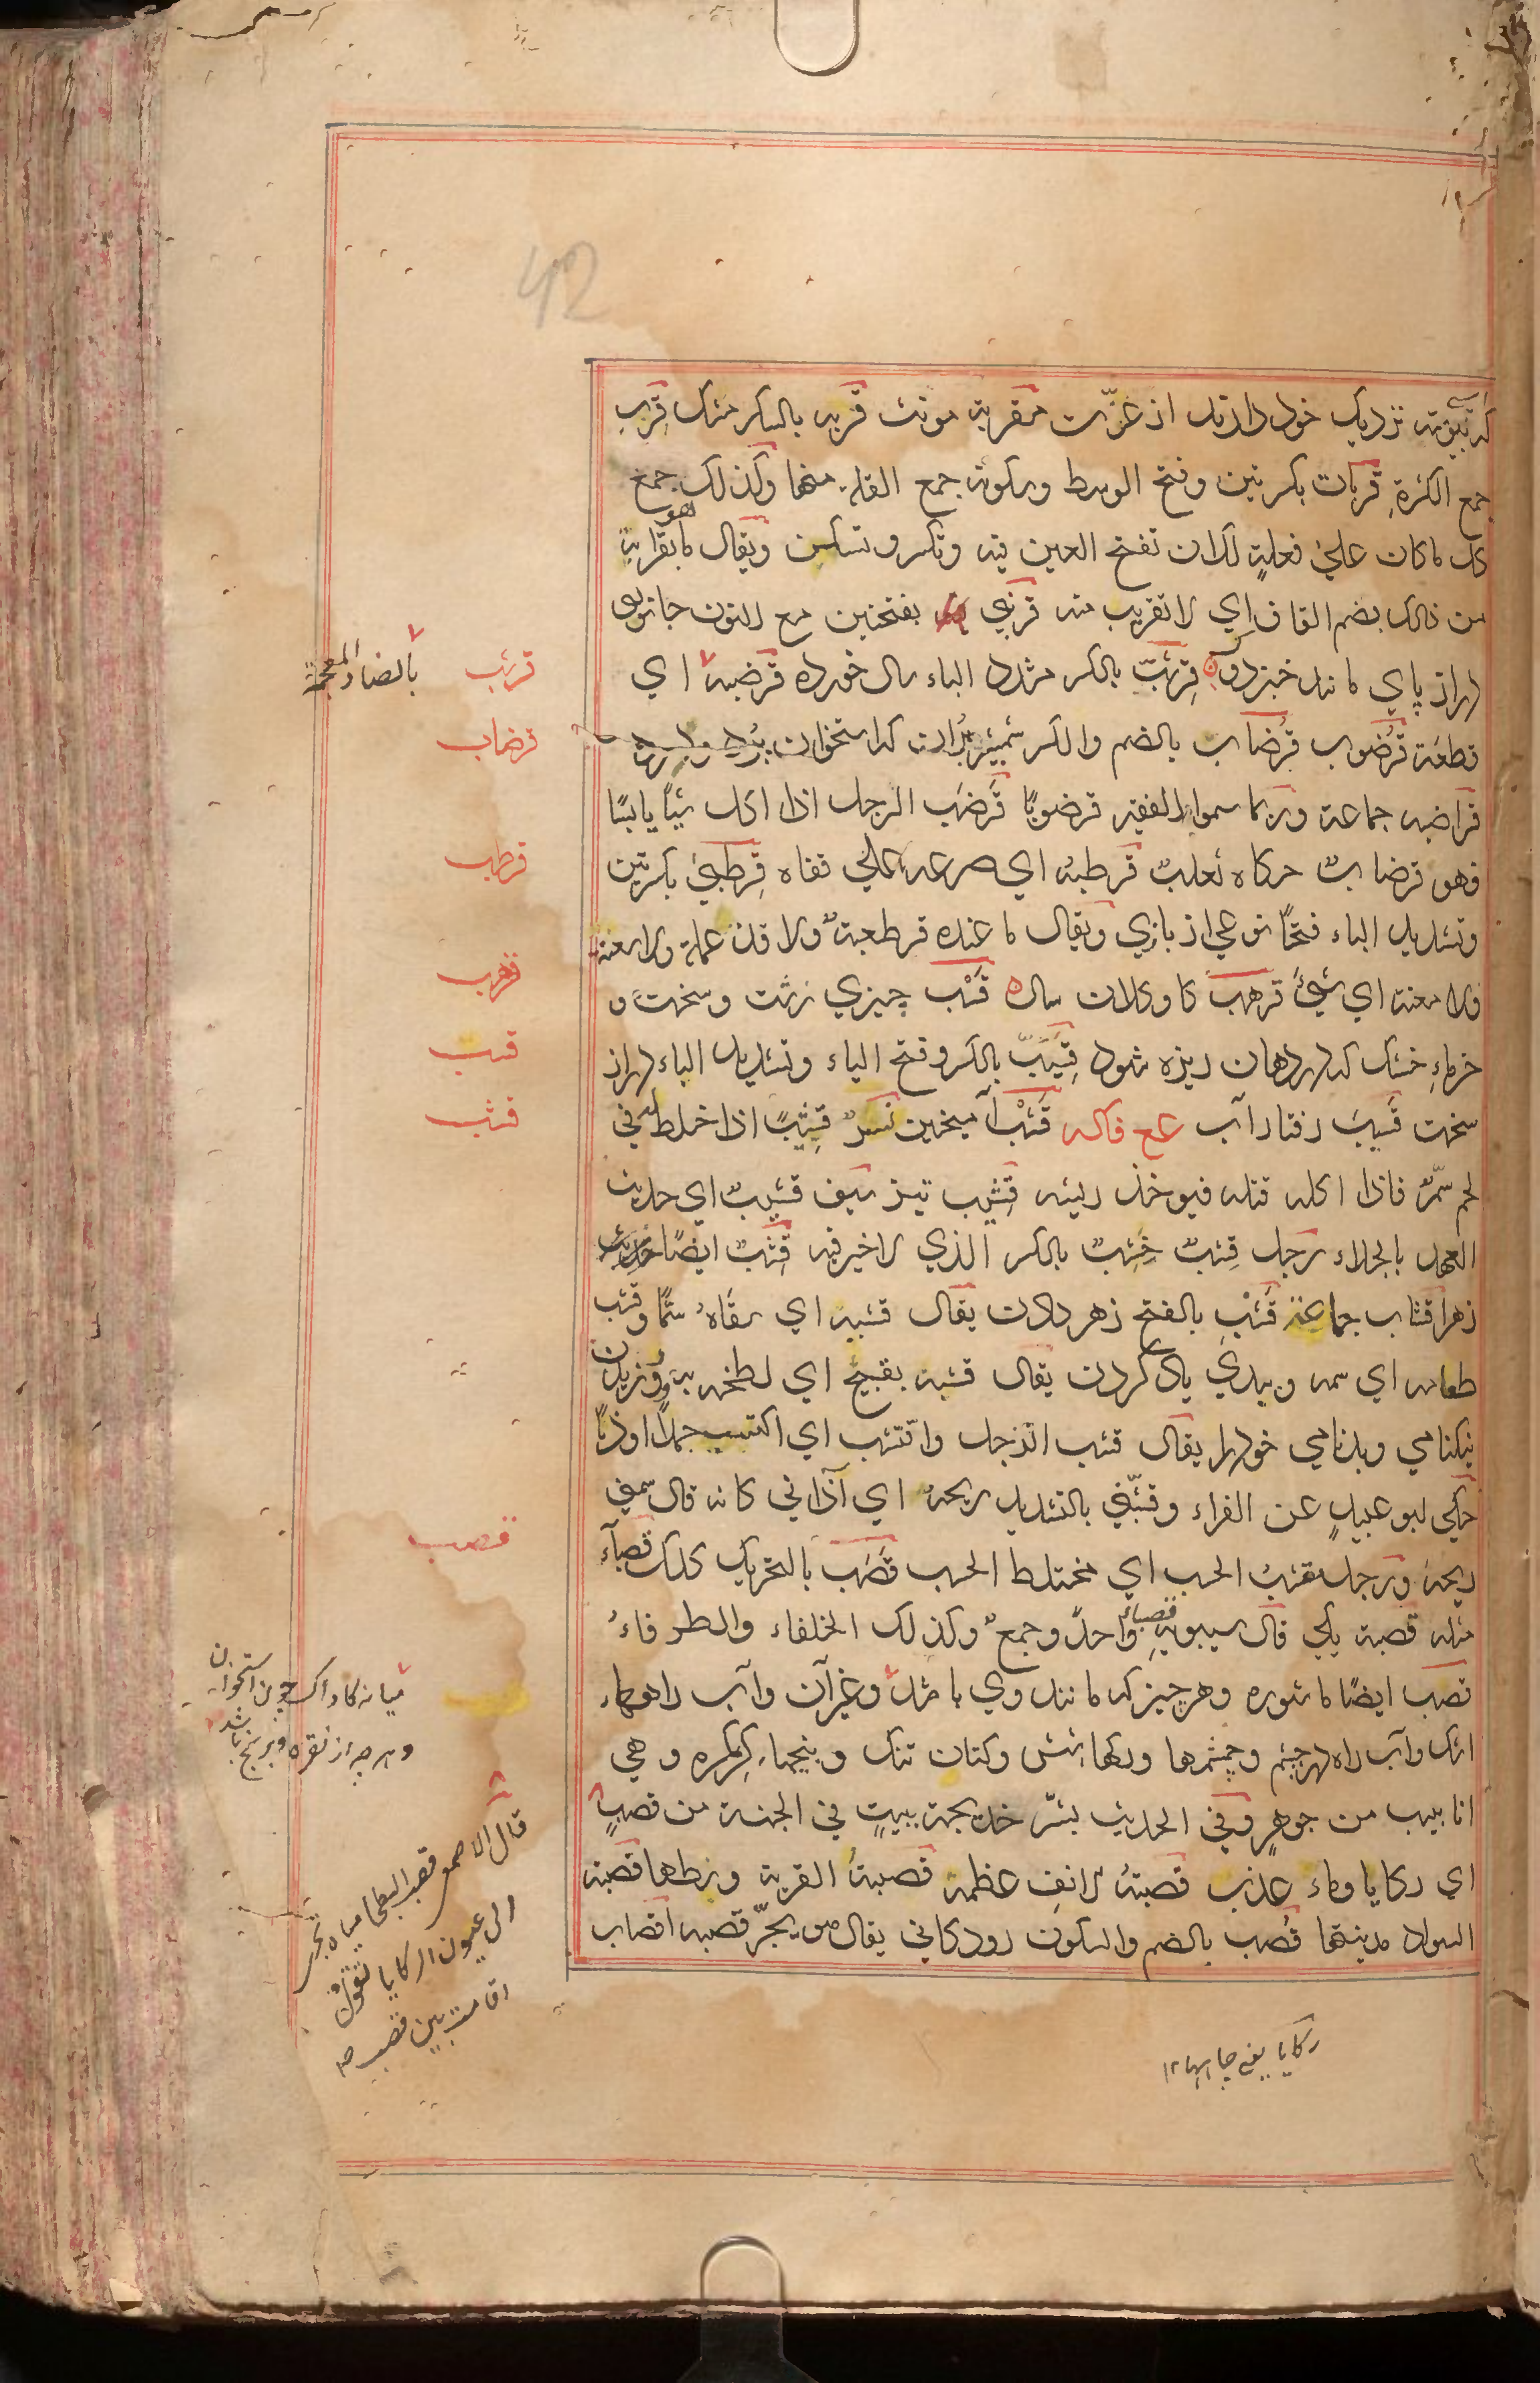 42
نزدیک خود دارند از عزّت مقربة مونث قربه بالکسر مشک قِرَب
جمع الکثرة قربات بکسرتین وفتح الوسط وسکونه جمع القلة منها وکذلک جمع
کل ما کان علیٰ فعلةٍ لک ان تفتح العین فیه وتکسر وتسکن ویقال ما هو بقرابة
من ذالک بضم القاف ای لا تقریب منه قرنبی بفتحتین مع النون جانوری
دراز پای مانند خبزدوک قِرشَبّ بالکسر مشدد الباء سال خورده قرضبة ای
قطعَة قرضوب قُرضاب بالضم والکسر شمشیر بُرّان که استخوان بُرد
قراضبه جماعة وربما سموا الفقیر قرضوبًا قَرضَب الرجل اذا اکل شیئًا یابسًا
فهو قرضابٌ حکاه ثعلبٌ قرطبهُ ای صرعه علی قفاه قِرطِبیٰ بکسرتین
وتشدید الباء فتحًا نوعی از بازی ویقال ما عنده قرطعبةٌ ولا قذ عملة ولا سعنة
ولا معنة ای شیءٌ قرهب گاو کلان سال قَسْب چیزی زشت وسخت و
خرماءِ خشک که در دهان ریزه شود قِسْیَبّ بالکسر وفتح الیاء وتشدید الباء دراز
سخت قَسیب رفتار آب ع ع فاکه قَشْب آمیختن نسرٌ قشِیبٌ اذا خلط له فی
لحم سمّ فاذا اکله قتله فیوخذ ریشه قَشِیب تیز سیف قشیبٌ ای حدیث
العهد بالجلاء رجل قِشبٌ خِشِبٌ بالکسر الذی لا خیر فیه قِشْبٌ ایضًا
زهر اقشاب جماعة قَشْب بالفتح زهر دادن یقال قشبه ای سقاهُ سمًّا وقشب
طعامه ای سمه وببدی یاد کردن یقال قشبه بقبیح ای لطخه به وورزیدن
نیکنامی وبدنامی خود را یقال قشب الرجل واقتشب ای اکتسب حمدًا او ذمًّا
حکی ابو عبیدٍ عن الفراء وقشّبنی بالتشدید ریحهُ ای آذانی کانه قال سمنی
ریحهٗ ورجل مقشب الحسب ای مختلط الحسب قَصَب بالتحریک کلک قصبآء
مثله قصبة یکی قال سیبویهِ قصباءُ واحدٌ وجمعٌ وکذلک الحلفاء والطرفاءُ
قصب ایضًا ماشوره وهر چیز که مانند وی باشد وغیر آن وآب راهها
اشک وآب راه در چشم وچشمها ورگهاء شش وکتان تنک وپنجهاء کرکره وهی
انابیب من جوهرٍ وفی الحدیث بشّر خدیجة ببیتٍ فی الجنة من قصبٍ
ای رکایا وماء عذب قصبةُ الانفِ عظمه قصبةُ القریة وسطها قصبة
السواد مدینتها قُصب بالضم والسکون رودگانی یقال هو یجرّ قصبه اقصاب
قرشب
بالضاد المعجمة
قرضاب
قرطب
قرهب
قسب
قشب
قصب
میانه کاواک چون استخوان
وهرچه از نقره وبرنج باشد
قال الاصمعی قصب البطحا میاه تجری
الی عیون الرکایا تقول
اقامت بین قصب صح
رکایا یعنی چاهها ۱۲